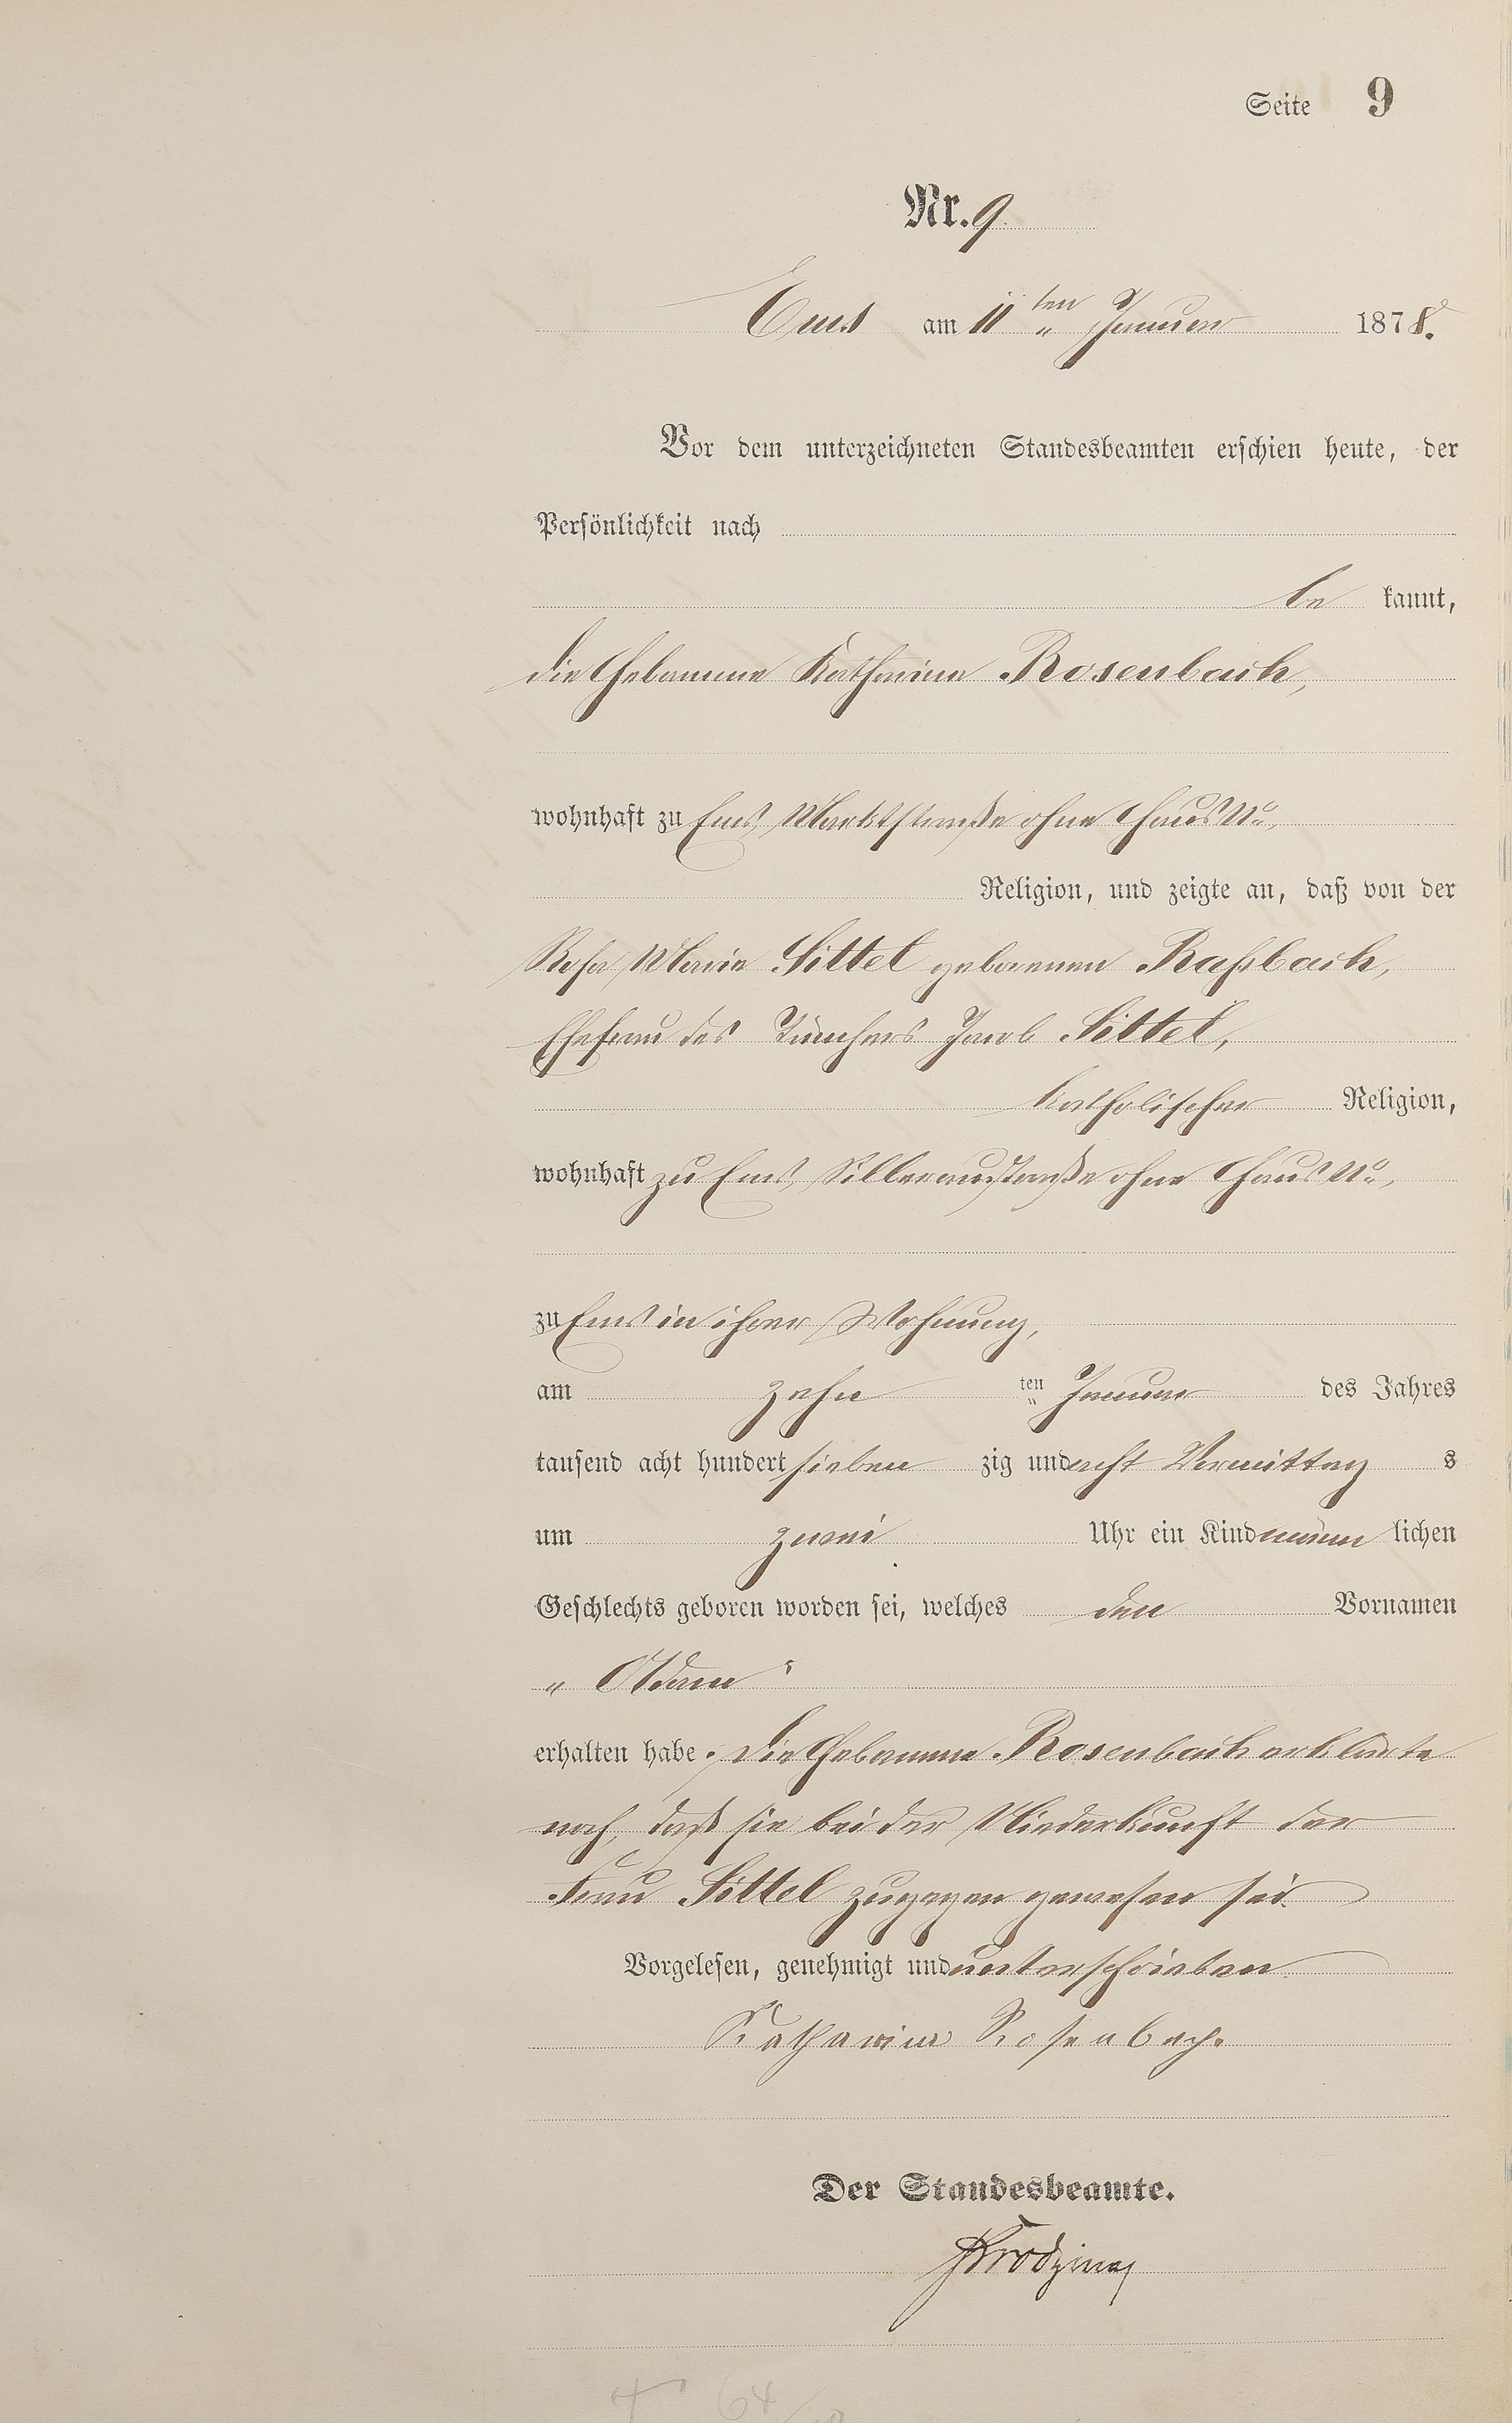 Seite 9
Nr. 9.
Ems am 11ten Januar 1878.
Vor dem unterzeichneten Standesbeamten erschien heute, der
Persönlichkeit nach
be kannt,
die Hebamme Katharina Rosenbach,
wohnhaft zu Ems, Marktstraße ohne Haus No,
Religion, und zeigte an, daß von der
Rosa Maria Sittel geborenen Raßbach,
Ehefrau des Tünchers Jacob Sittel,
katholischer Religion,
wohnhaft zu Ems, Silberaustraße ohne Haus No,
zu Ems in ihrer Wohnung,
am zehn ten Januar des Jahres
tausend acht hundert sieben zig und acht Vormittag s
um zwei Uhr ein Kind männ lichen
Geschlechts geboren worden sei, welches den Vornamen
„Adam"
erhalten habe. Die Hebamme Rosenbach erklärte
noch, daß sie bei der Niederkunft der
Frau Sittel zugegen gewesen sei.
Vorgelesen, genehmigt und unterschrieben
Katharina Rosenbach.
Der Standesbeamte.
64